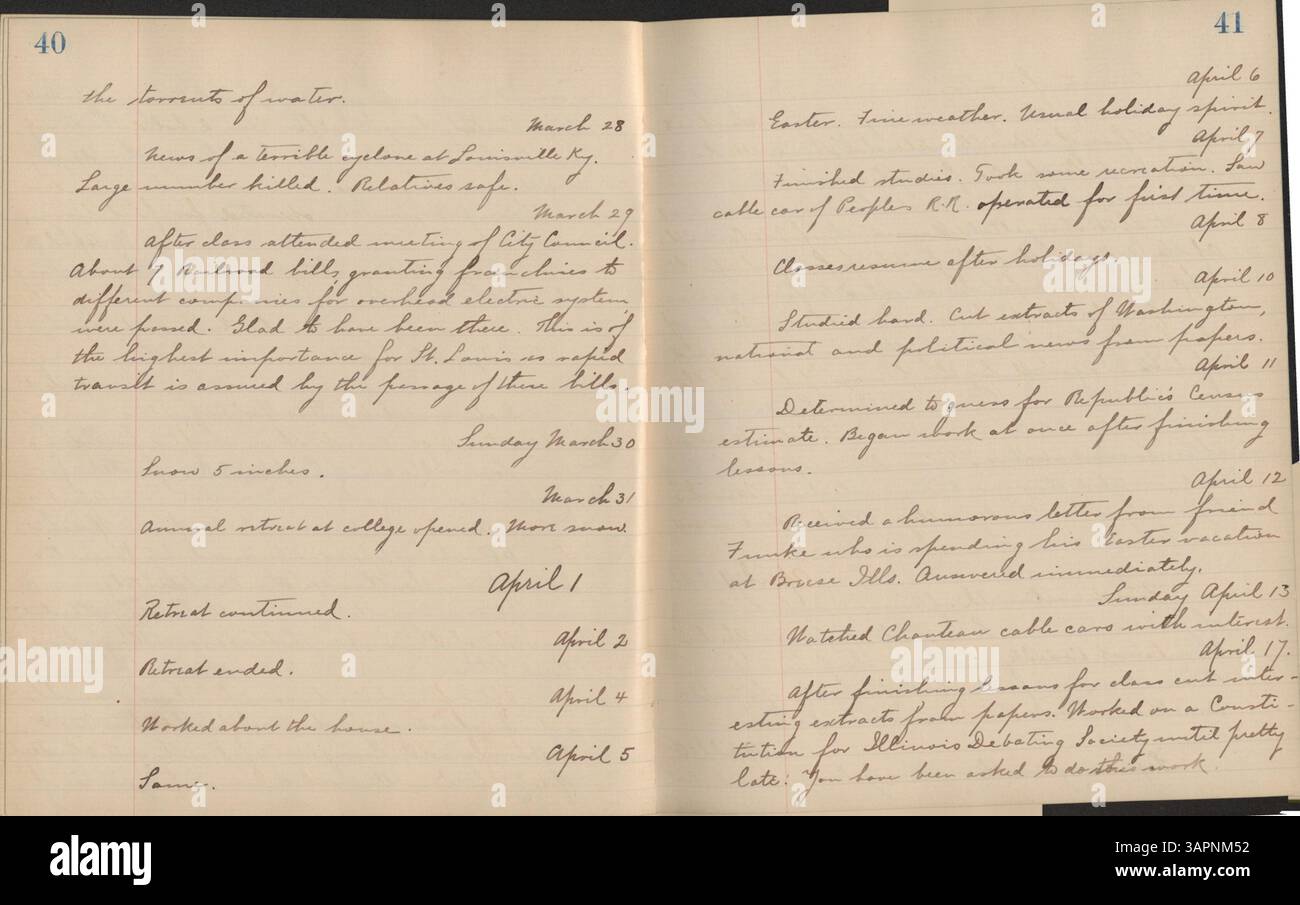 40
the torrents of water.
March 28
News of a terrible cyclone at Louisville Ky.
Large number killed. Relatives safe.
March 29
After class attended meeting of City Council.
About 7 Railroad bills, granting franchises to
different companies for overhead electric system,
were passed. Glad to have been there. This is of
the highest importance for St. Louis as rapid
transit is assured by the passage of these bills.
Sunday March 30
Snow 5 inches.
March 31
Annual retreat at college opened. More snow.
April 1
Retreat continued.
April 2
Retreat ended.
April 4
Worked about the house.
April 5
Same.
41
April 6
Easter. Fine weather. Usual holiday spirit.
April 7
Finished studies. Took some recreation. Saw
cable car of Peoples R.R. operated for first time.
April 8
Classes resume after holidays.
April 10
Studied hard. Cut extracts of Washington,
national and political news from papers.
April 11
Determined to guess for Republic's Census
estimate. Began work at once after finishing
lessons.
April 12
Received a humorous letter from friend
Funke who is spending his Easter vacation
at Breese Ills. Answered immediately.
Sunday April 13
Watched Chouteau cable cars with interest.
April 17.
After finishing lessons for class cut inter-
esting extracts from papers. Worked on a Consti-
tution for Illinois Debating Society until pretty
late. You have been asked to do this work.
alamy
Image ID: 3APNM52
www.alamy.com